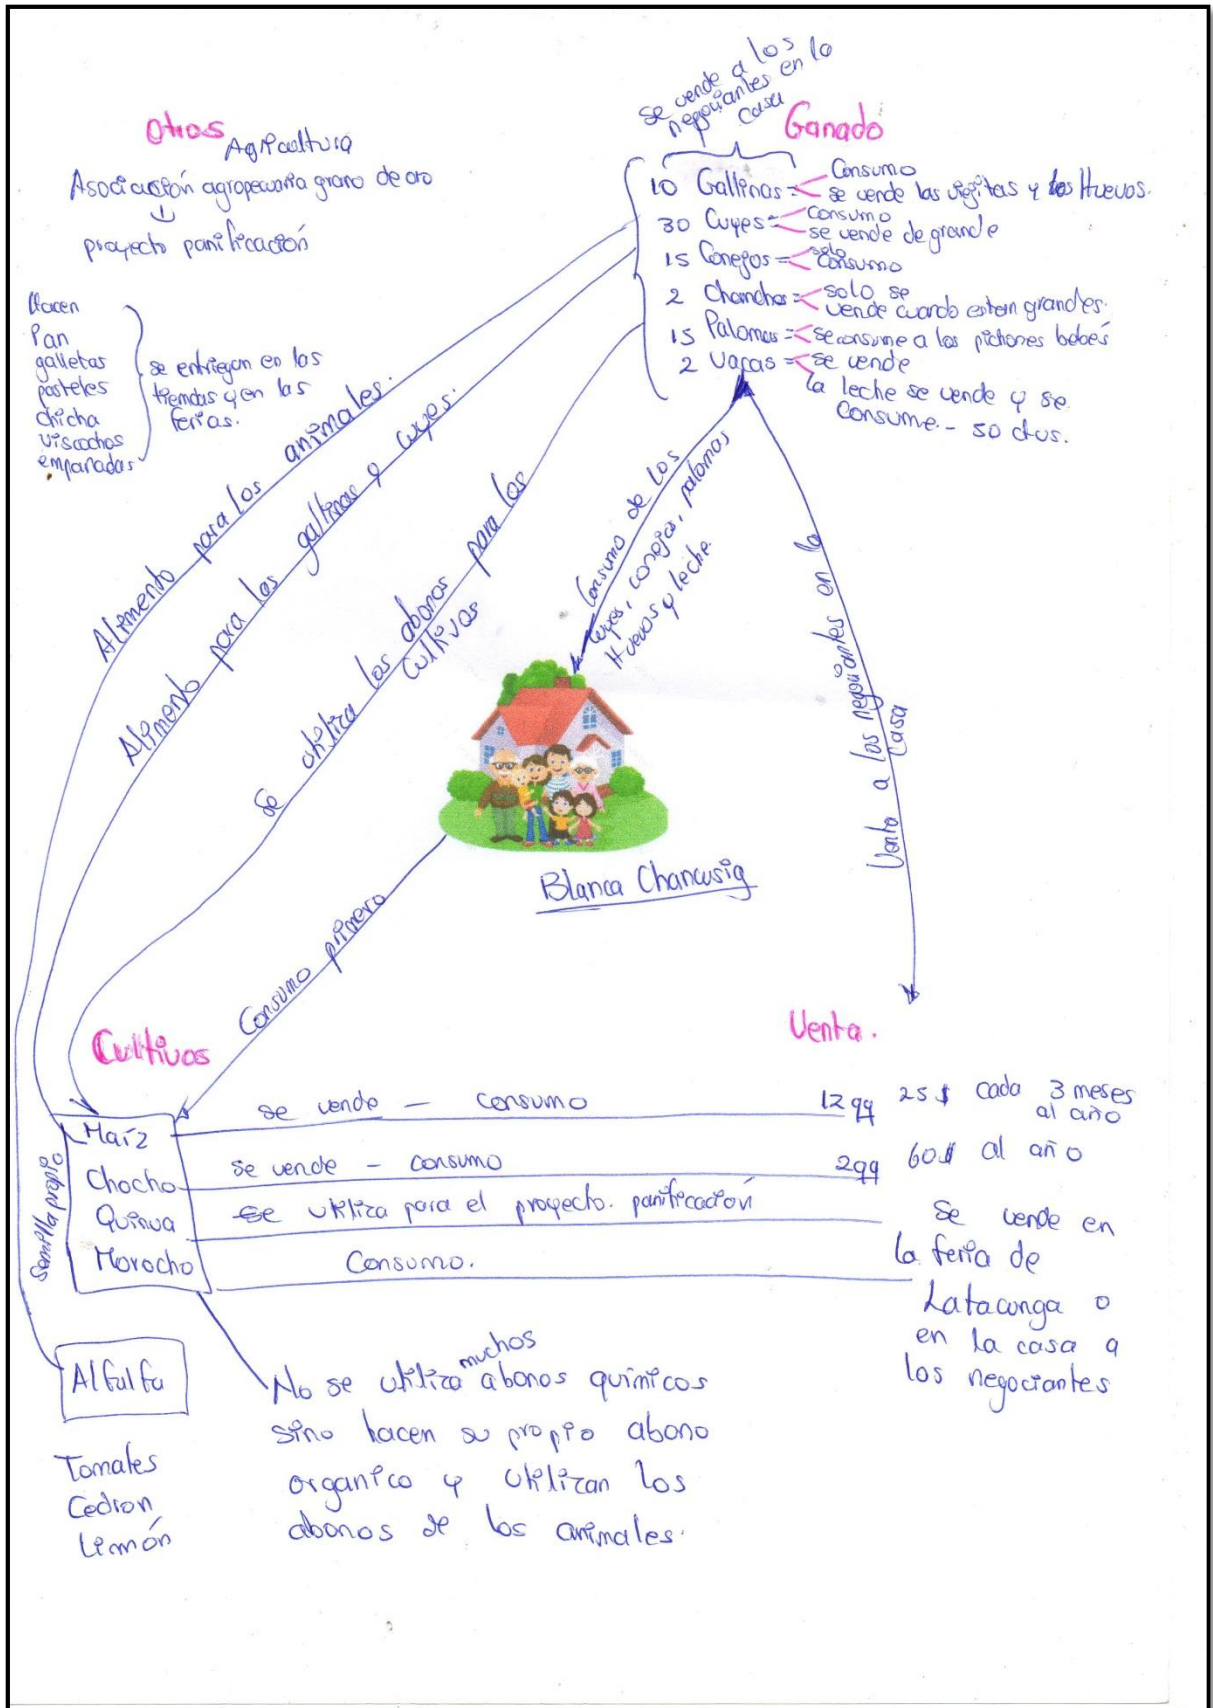 Otros
Agricultura
Asociación agropecuaria grano de oro
proyecto panificación
Hacen
Pan
galletas
pasteles
chicha
viscochos
empanadas
se entriegan en las
tiendas y en las
ferias.
se vende a los
negociantes en la
casa
Ganado
10 Gallinas = Consumo
se vende las viejitas y los Huevos.
30 Cuyes = Consumo
se vende de grande
15 Conejos = solo
consumo
2 Chanchos = solo se
vende cuando esten grandes.
15 Palomas = se consume a los pichones bebés
2 Vacas = se vende
la leche se vende y se
Consume. - 50 ctvs.
Alimento para los animales.
Alimento para las gallinas y cuyes.
se utiliza los abonos para los
cultivos
Consumo de los
cuyes, conejos, palomas
Huevos y leche.
Venta a los negociantes en la
casa
Blanca Chancusig
Consumo primero
Cultivos
Venta.
Semilla propio
Maíz se vende - consumo 12 qq 25 $ cada 3 meses
al año
Chocho se vende - consumo 2 qq 60$ al año
Quinua se utiliza para el proyecto. panificación
Morocho Consumo.
Se vende en
la feria de
Latacunga o
en la casa a
los negociantes
Alfalfa
Tomates
Cedron
Limón
No se utiliza muchos abonos químicos
sino hacen su propio abono
organico y utilizan los
abonos de los animales.